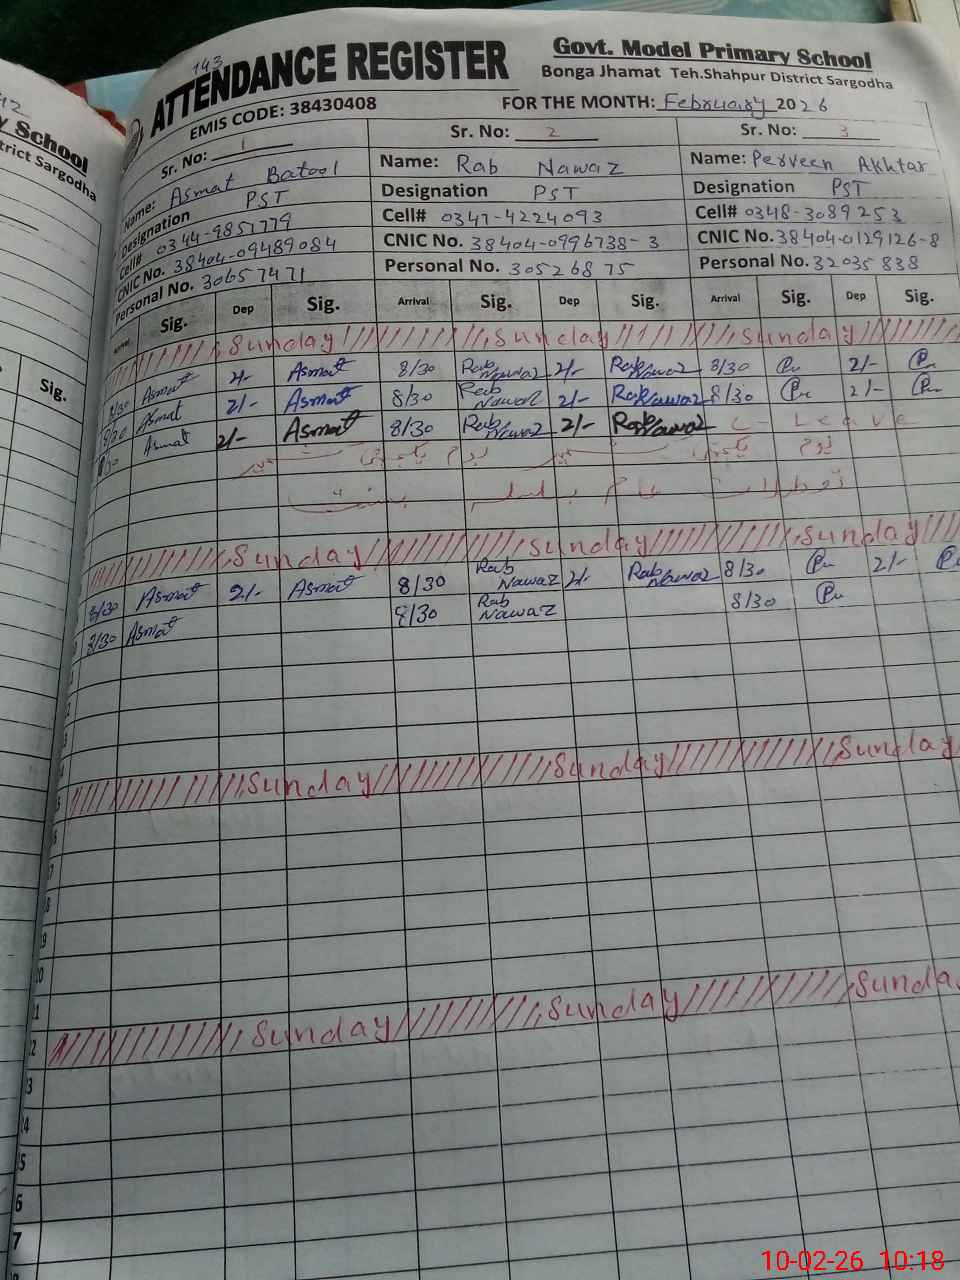 143
ATTENDANCE REGISTER
Govt. Model Primary School
Bonga Jhamat Teh.Shahpur District Sargodha
EMIS CODE: 38430408
FOR THE MONTH: February 2026
Sr. No: 1 Sr. No: 2 Sr. No: 3
Name: Asmat Batool Name: Rab Nawaz Name: Perveen Akhtar
Designation PST Designation PST Designation PST
Cell# 0344-9851779 Cell# 0347-4224093 Cell# 0348-3089253
CNIC No. 38404-09489084 CNIC No. 38404-0996738-3 CNIC No. 38404-0129126-8
Personal No. 30657471 Personal No. 30526875 Personal No. 32035838
Arrival Sig. Dep Sig. Arrival Sig. Dep Sig. Arrival Sig. Dep Sig.
Sunday Sunday Sunday
8/30 Asmat 2/- Asmat 8/30 Rab Nawaz 2/- Rab Nawaz 8/30 2/-
8/30 Asmat 2/- Asmat 8/30 Rab Nawaz 2/- Rab Nawaz 8/30 2/-
8/30 Asmat 2/- Asmat 8/30 Rab Nawaz 2/- Rab Nawaz C - Leave
یوم یکجہتی کشمیر یوم یکجہتی کشمیر
تعطیلات عام بسلسلہ بسنت
Sunday Sunday Sunday
8/30 Asmat 2/- Asmat 8/30 Rab Nawaz 2/- Rab Nawaz 8/30 2/-
8/30 Asmat 8/30 Rab Nawaz 8/30
Sunday Sunday Sunday
Sunday Sunday Sunda
School
trict Sargodha
Sig.
10-02-26 10:18